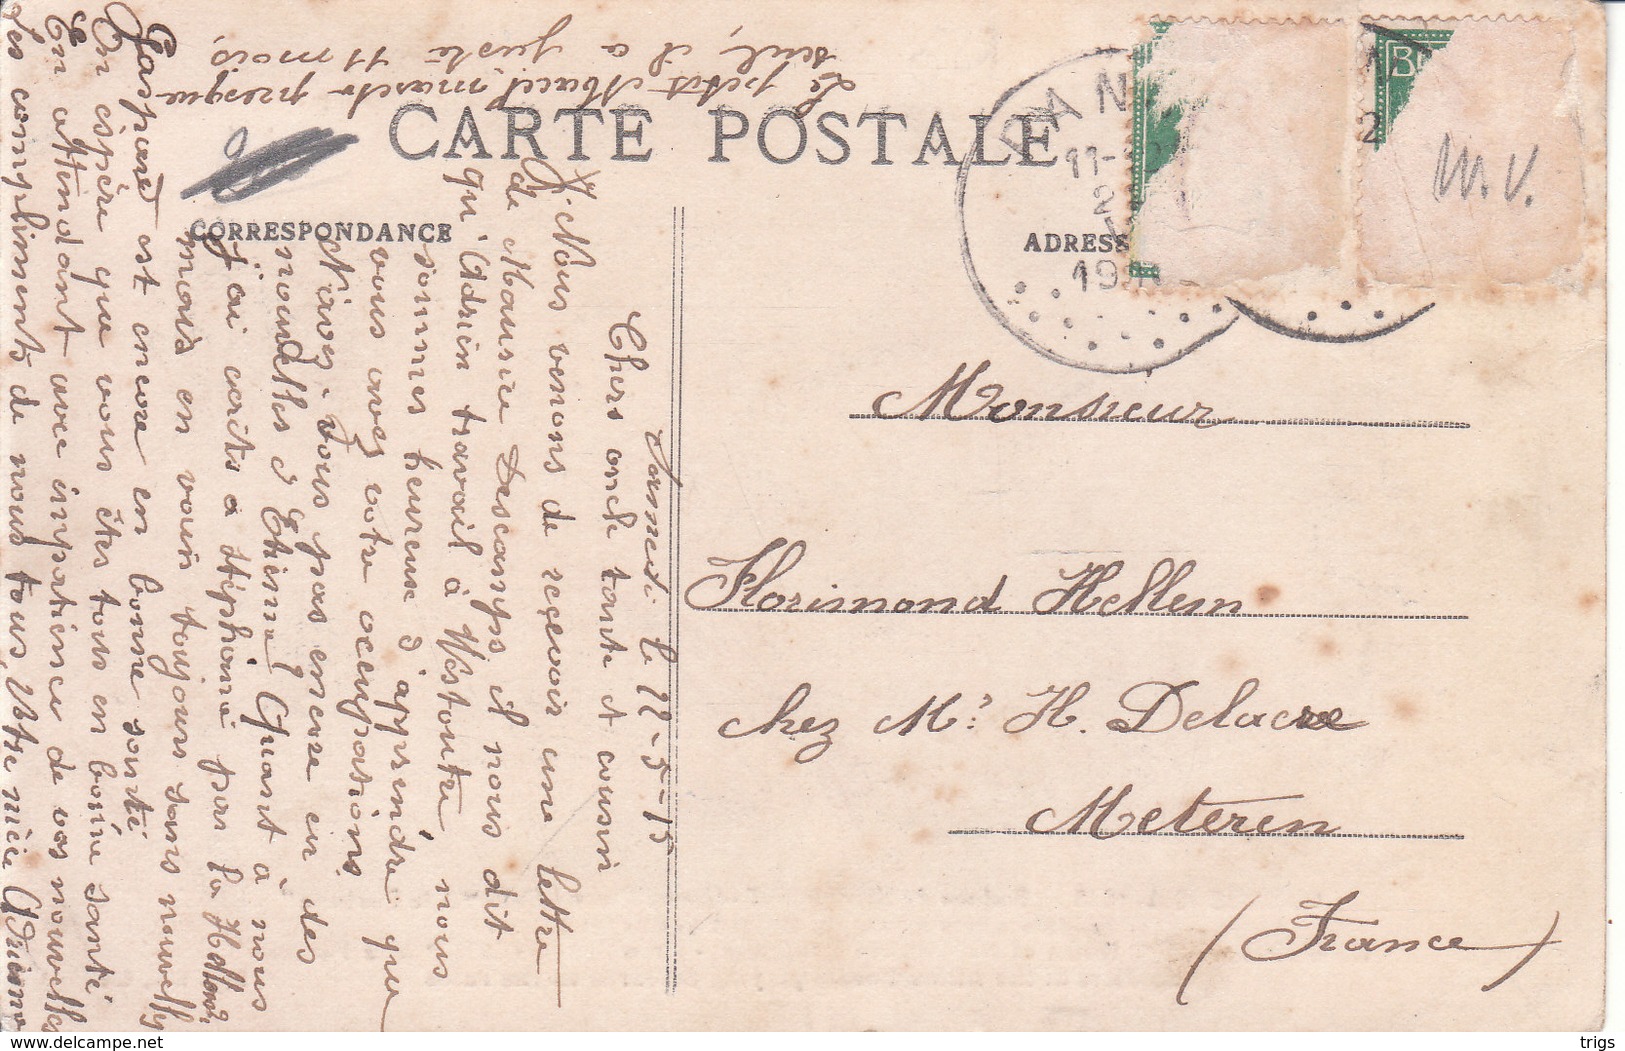 CARTE POSTALE
CORRESPONDANCE
ADRESS
11-
2
19
2
B
M.V.
Monsieur
Florimond Hellem
chez Mr H. Delacre
Meteren
(France)
Samedi le 22-5-15
Chers oncle tante et cousin
Nous venons de reçevoir une lettre
de Maurice Descamps il nous dit
qu'Adrien travail à Westoutre nous
sommes heureuse d'apprendre que
vous avez votre occupations
N'avez-vous pas encore eu des
nouvelles d'Etienne? Quant à nous
j'ai écrits a téphoné par la
mais en vain toujours sans nouvelle
Gaspard est encore en bonne santé
En espère que vous êtes tous en bonne santé
En attendant avec inpatience de vos nouvelles
les compliments de nous tous, Votre nièce Adrienne
Le petit Marcel marche presque
seul, il a juste 11 mois,
delcampe.net
trigs